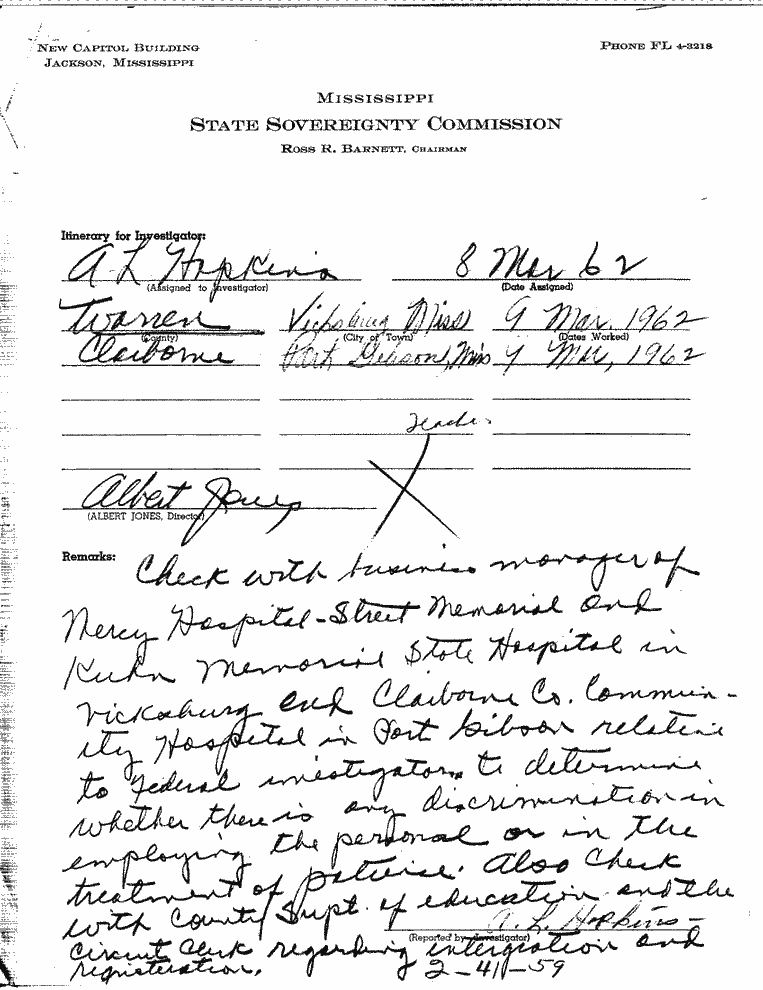 NEW CAPITOL BUILDING
JACKSON, MISSISSIPPI
PHONE FL 4-3218
MISSISSIPPI
STATE SOVEREIGNTY COMMISSION
ROSS R. BARNETT, CHAIRMAN
Itinerary for Investigator:
A L Hopkins 8 Mar 62
(Assigned to Investigator) (Date Assigned)
Warren Vicksburg Miss 9 Mar. 1962
(County) (City of Town) (Dates Worked)
Claiborne Port Gibson, Miss 9 Mar, 1962
Teacher
Albert Jones
(ALBERT JONES, Director)
Remarks: Check with business manager of
Mercy Hospital-Street Memorial and
Kuhn Memorial State Hospital in
Vicksburg and Claiborne Co. Commun-
ity Hospital in Port Gibson relative
to Federal investigators to determine
whether there is any discrimination in
employing the personal or in the
treatment of . Also Check
with County Supt. of education and the
A. L. Hopkins-
(Reported by Investigator)
Circuit Clerk regarding intergration and
registeration. 2-41-59